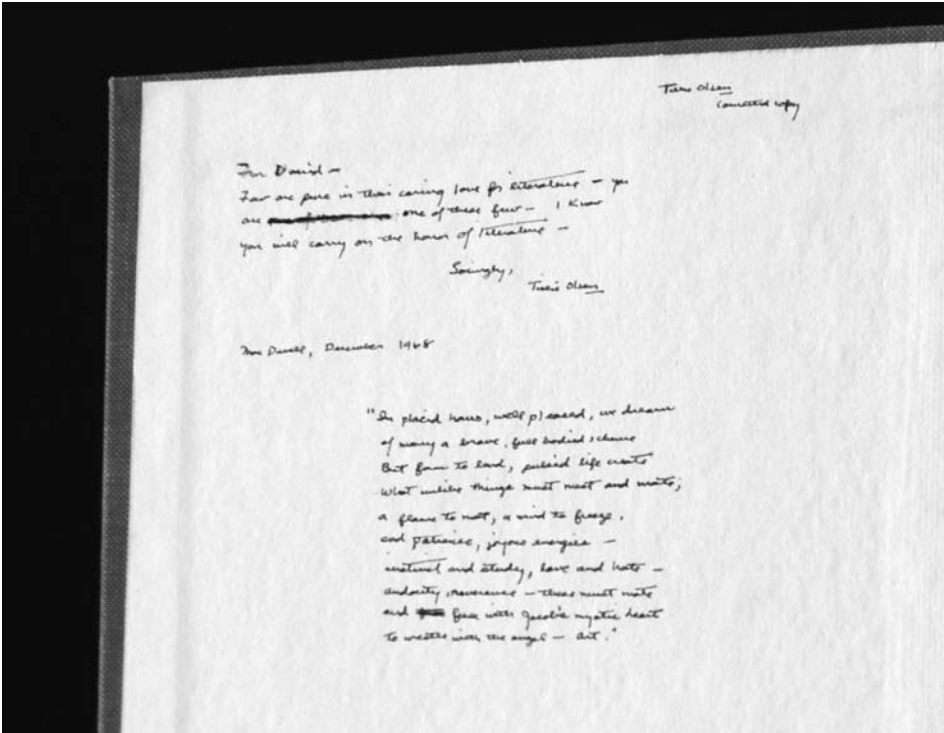 Tillie Olsen
corrected copy
For David —
Few are pure in their caring love for literature — you
are one of these few — I know
you will carry on the honor of literature —
Lovingly,
Tillie Olsen
MacDowell, December 1968
"In placid hours, well pleased, we dream
of many a brave, full bodied scheme
But form to lend, pulsed life create
What unlike things must meet and mate;
a flame to melt, a wind to freeze,
sad patience, joyous energies —
instinct and study, love and hate —
audacity, reverence — these must mate
and fuse with Jacob's mystic heart
to wrestle with the angel — Art."